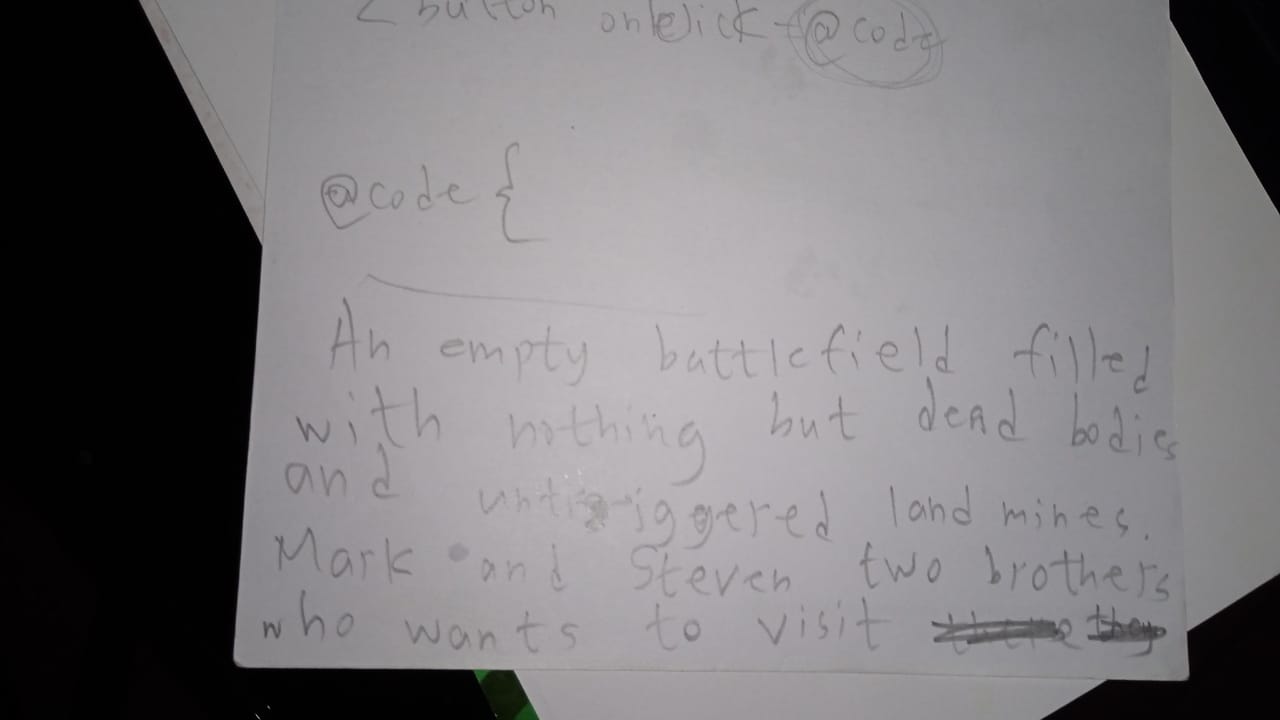 < button onclick=@code
@code {
An empty battlefield filled
with nothing but dead bodies
and untriggered land mines.
Mark and Steven two brothers
who wants to visit